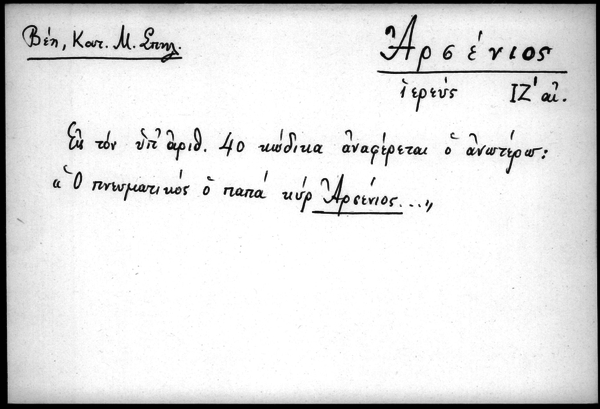 Βέη, Κατ. Μ. Σπηλ.
Ἀρσένιος
ἱερεύς ΙΖ' αἰ.
Εἰς τόν ὑπ' ἀριθ. 40 κώδικα ἀναφέρεται ὁ ἀνωτέρω:
«Ὁ πνευματικός ὁ παπά κύρ Ἀρσένιος...»